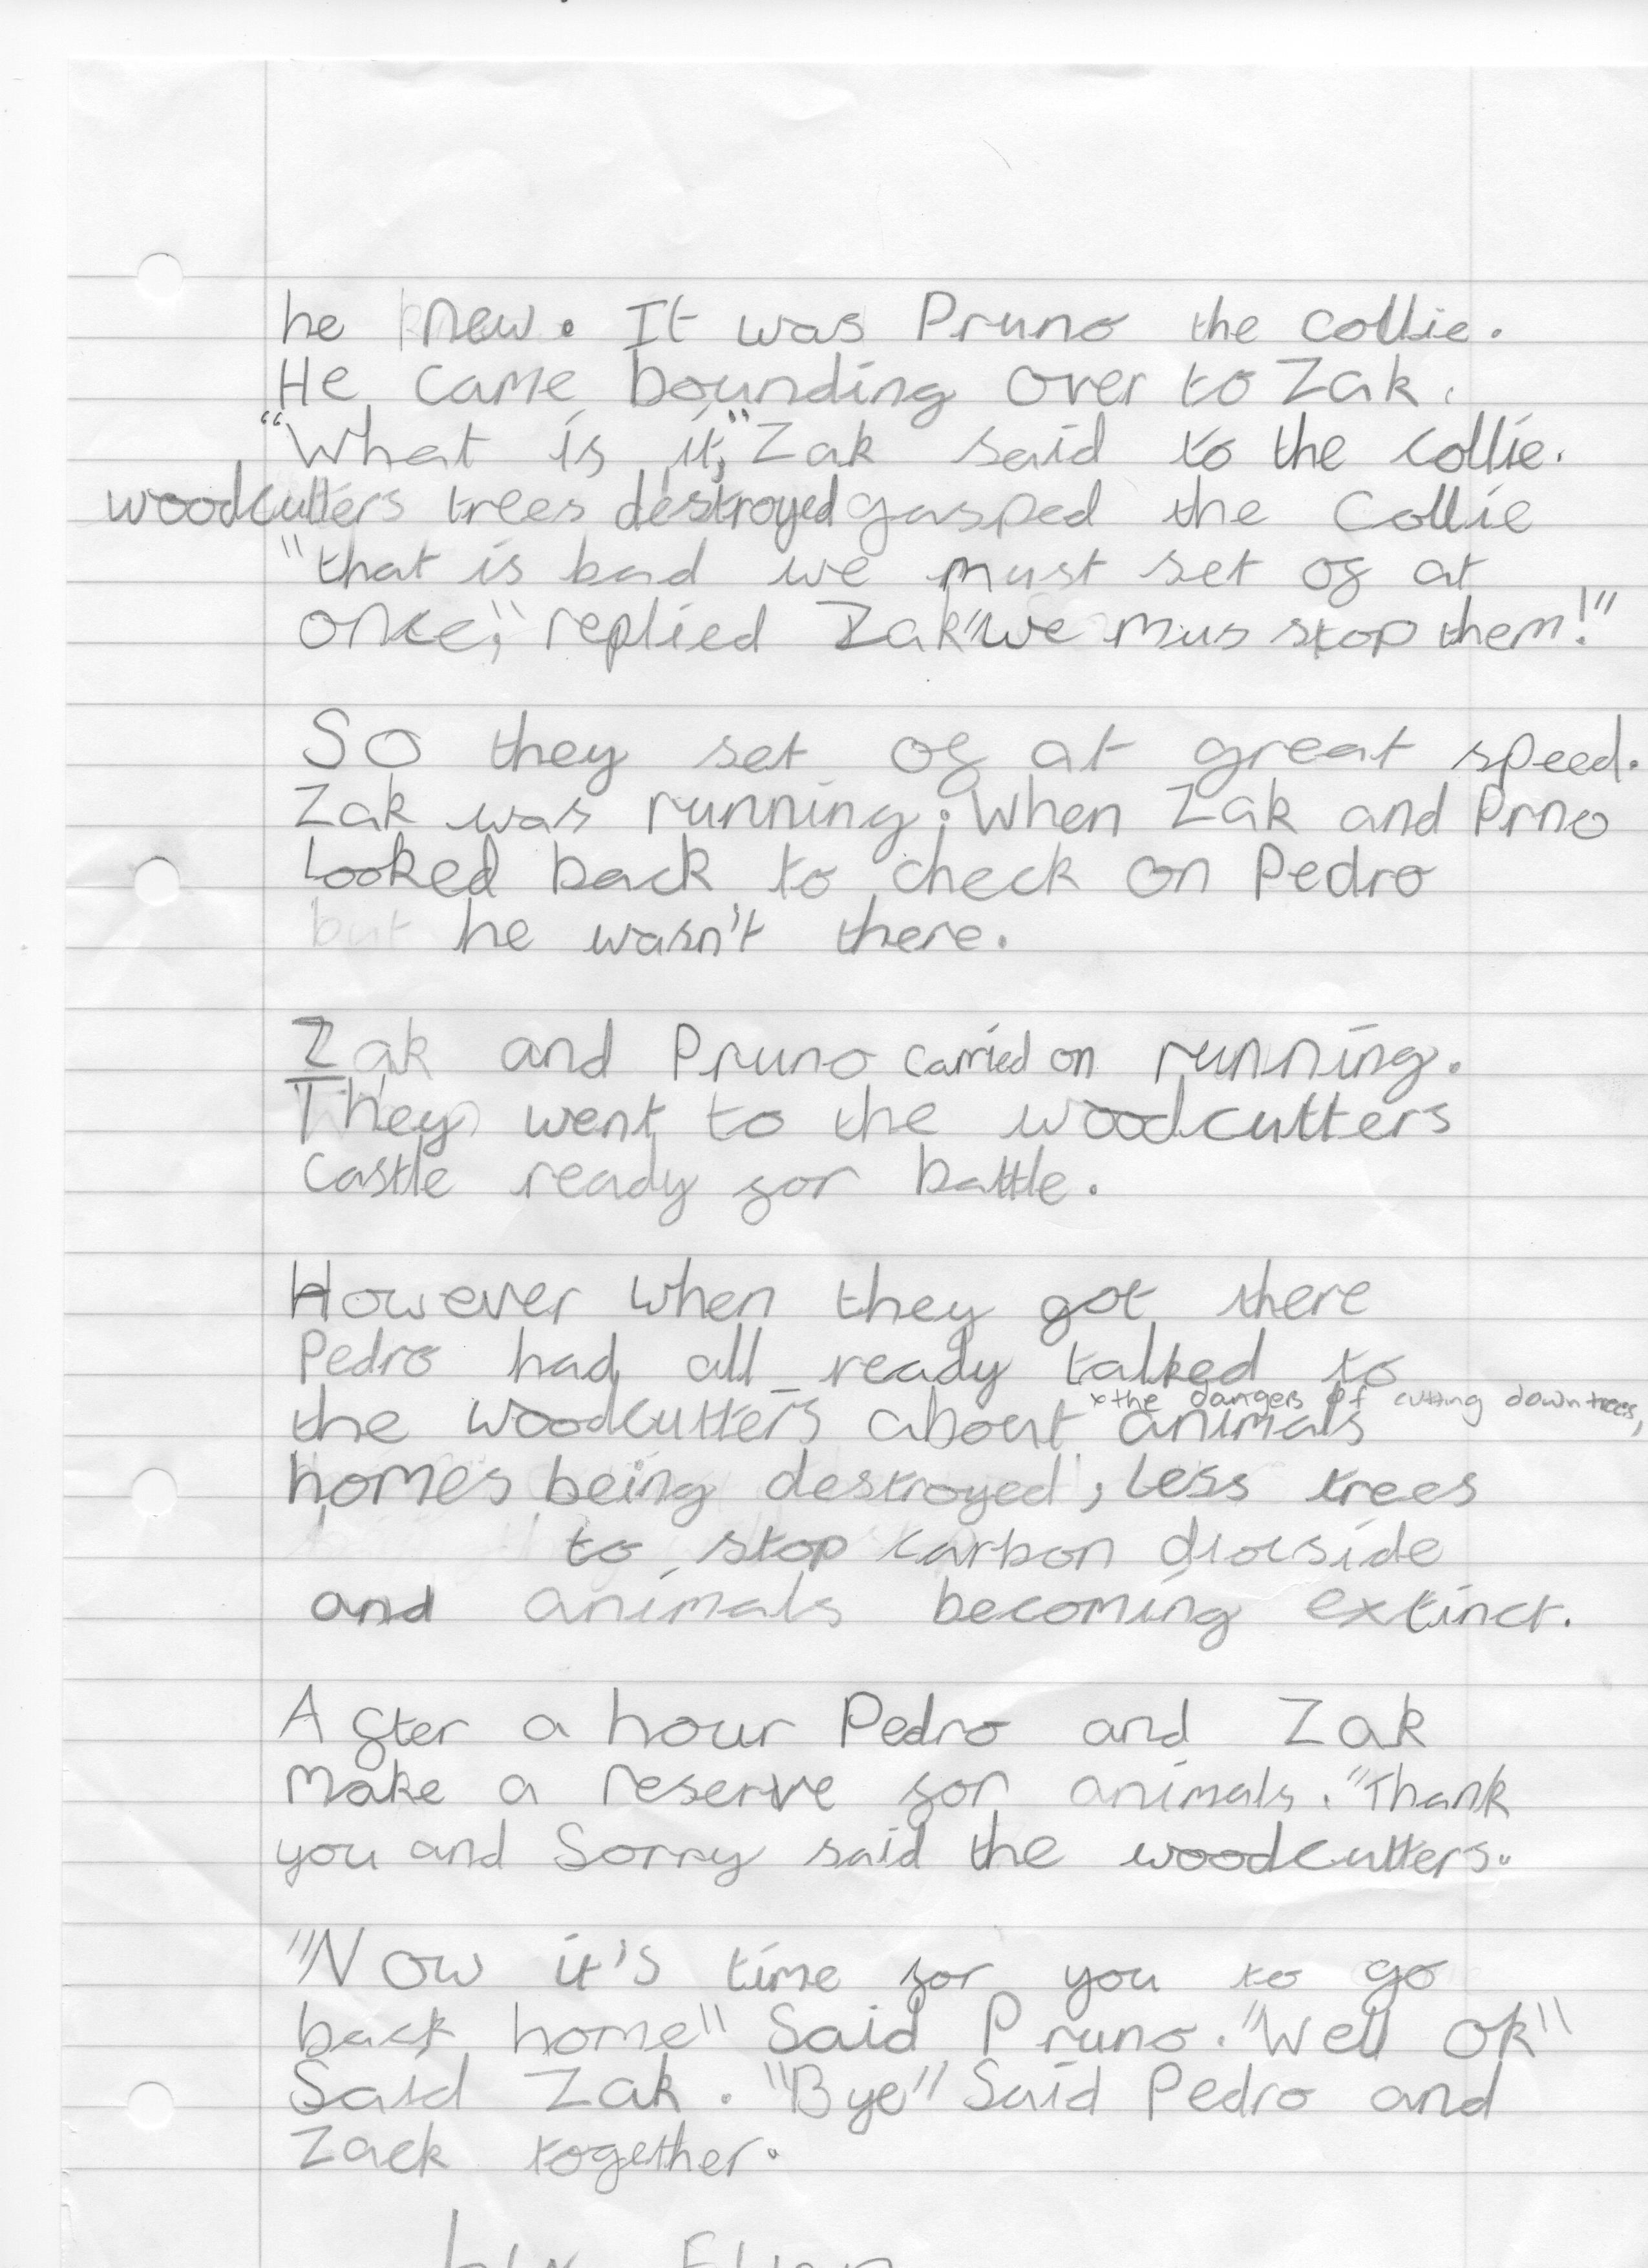 he knew. It was Pruno the collie.
He came bounding over to Zak.
"What is it," Zak said to the collie.
woodcutters trees destroyed gasped the Collie
"that is bad we must set of at
once," replied Zak "we mus stop them!"
So they set of at great speed.
Zak was running. When Zak and Prno
looked back to check on Pedro
but he wasn't there.
Zak and Pruno carried on running.
They went to the woodcutters
castle ready for battle.
However when they got there
Pedro had all ready talked to
*the dangers of cutting down trees,
the woodcutters about * animals
homes being destroyed, less trees
to stop carbon diocside
and animals becoming extinct.
After a hour Pedro and Zak
make a reserve for animals. "Thank
you and Sorry said the woodcutters.
"Now it's time for you to go
back home" Said Pruno. "Well ok"
Said Zak. "Bye" Said Pedro and
Zack together.
by